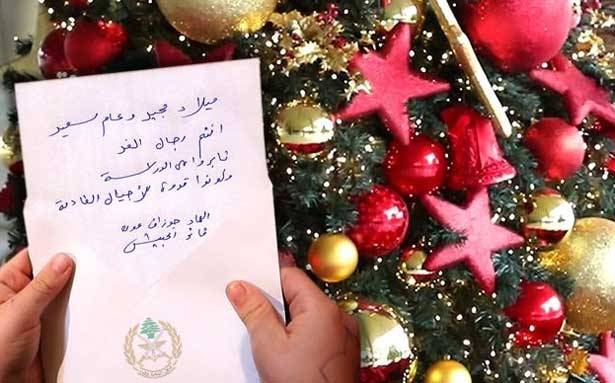 ميلاد مجيد وعام سعيد
انتم رجال الغد
ثابروا على الدراسة
وكونوا قدوة للأجيال القادمة
العماد جوزاف عون
قائد الجيش